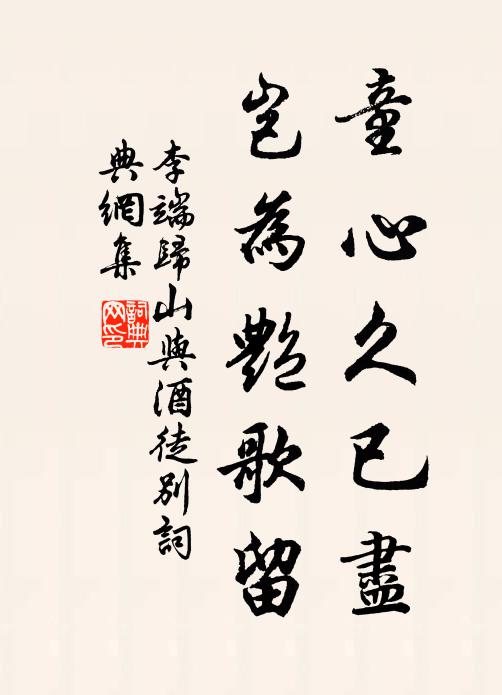 童心久已盡
豈為艷歌留
李端歸山與酒徒別詞
典網集
詞典網印